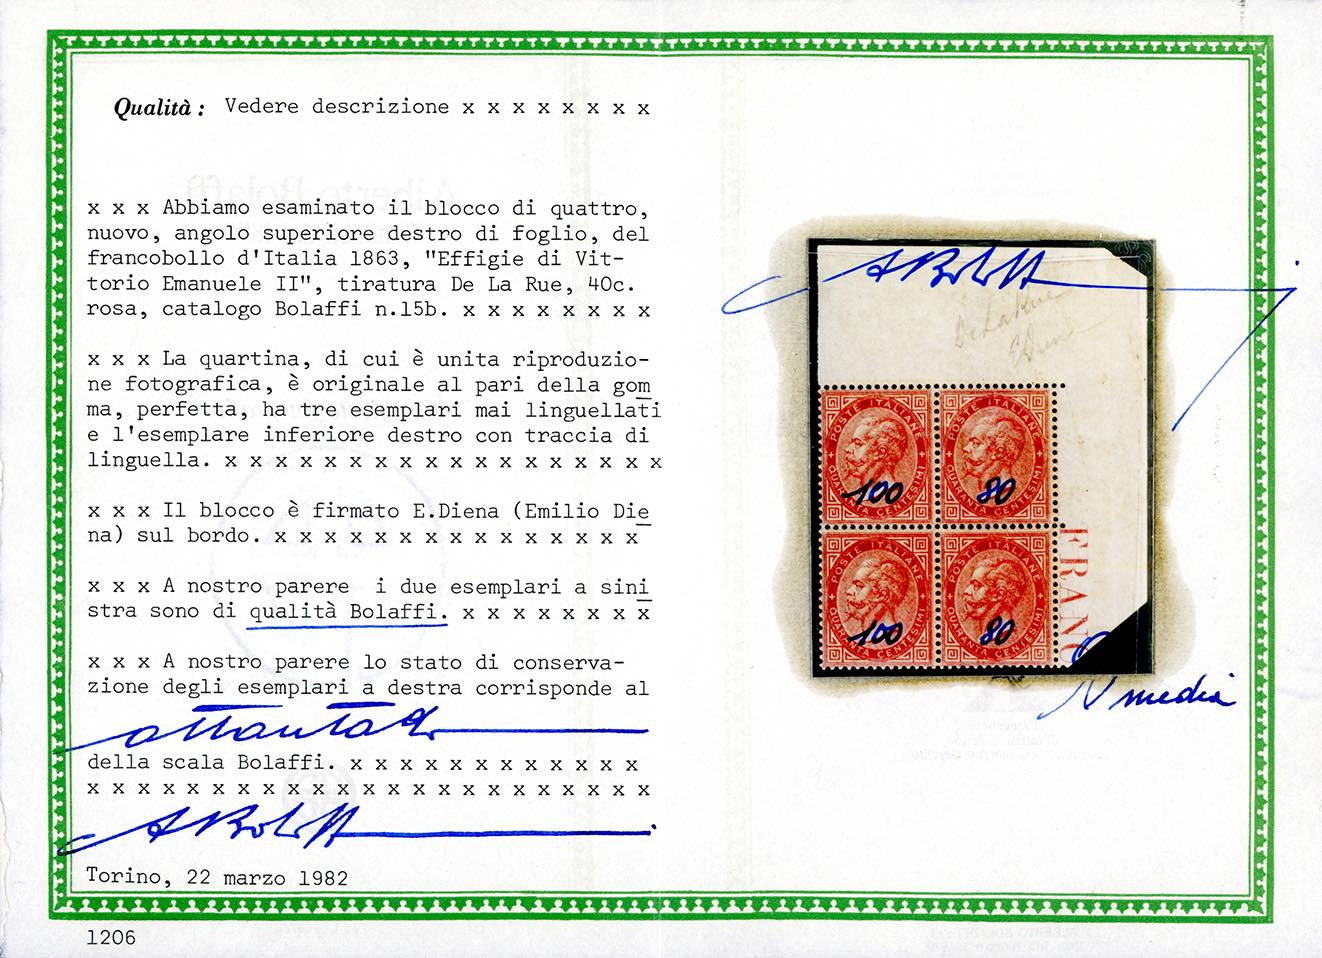 Qualità : Vedere descrizione x x x x x x x x
x x x Abbiamo esaminato il blocco di quattro,
nuovo, angolo superiore destro di foglio, del
francobollo d'Italia 1863, "Effigie di Vit-
torio Emanuele II", tiratura De La Rue, 40c.
rosa, catalogo Bolaffi n.15b. x x x x x x x x
x x x La quartina, di cui è unita riproduzio-
ne fotografica, è originale al pari della gom
ma, perfetta, ha tre esemplari mai linguellati
e l'esemplare inferiore destro con traccia di
linguella. x x x x x x x x x x x x x x x x x x
x x x Il blocco è firmato E.Diena (Emilio Die
na) sul bordo. x x x x x x x x x x x x x x x
x x x A nostro parere i due esemplari a sini
stra sono di qualità Bolaffi. x x x x x x x x
x x x A nostro parere lo stato di conserva-
zione degli esemplari a destra corrisponde al
ottanta%
della scala Bolaffi. x x x x x x x x x x x x
x x x x x x x x x x x x x x x x x x x x x x x
A Bolaffi
Torino, 22 marzo 1982
1206
A Bolaffi
De La Rue
EDiena
POSTE ITALIANE
100
QUARANTA CENTESIMI
POSTE ITALIANE
80
QUARANTA CENTESIMI
POSTE ITALIANE
100
QUARANTA CENTESIMI
POSTE ITALIANE
80
QUARANTA CENTESIMI
FRANC
N media